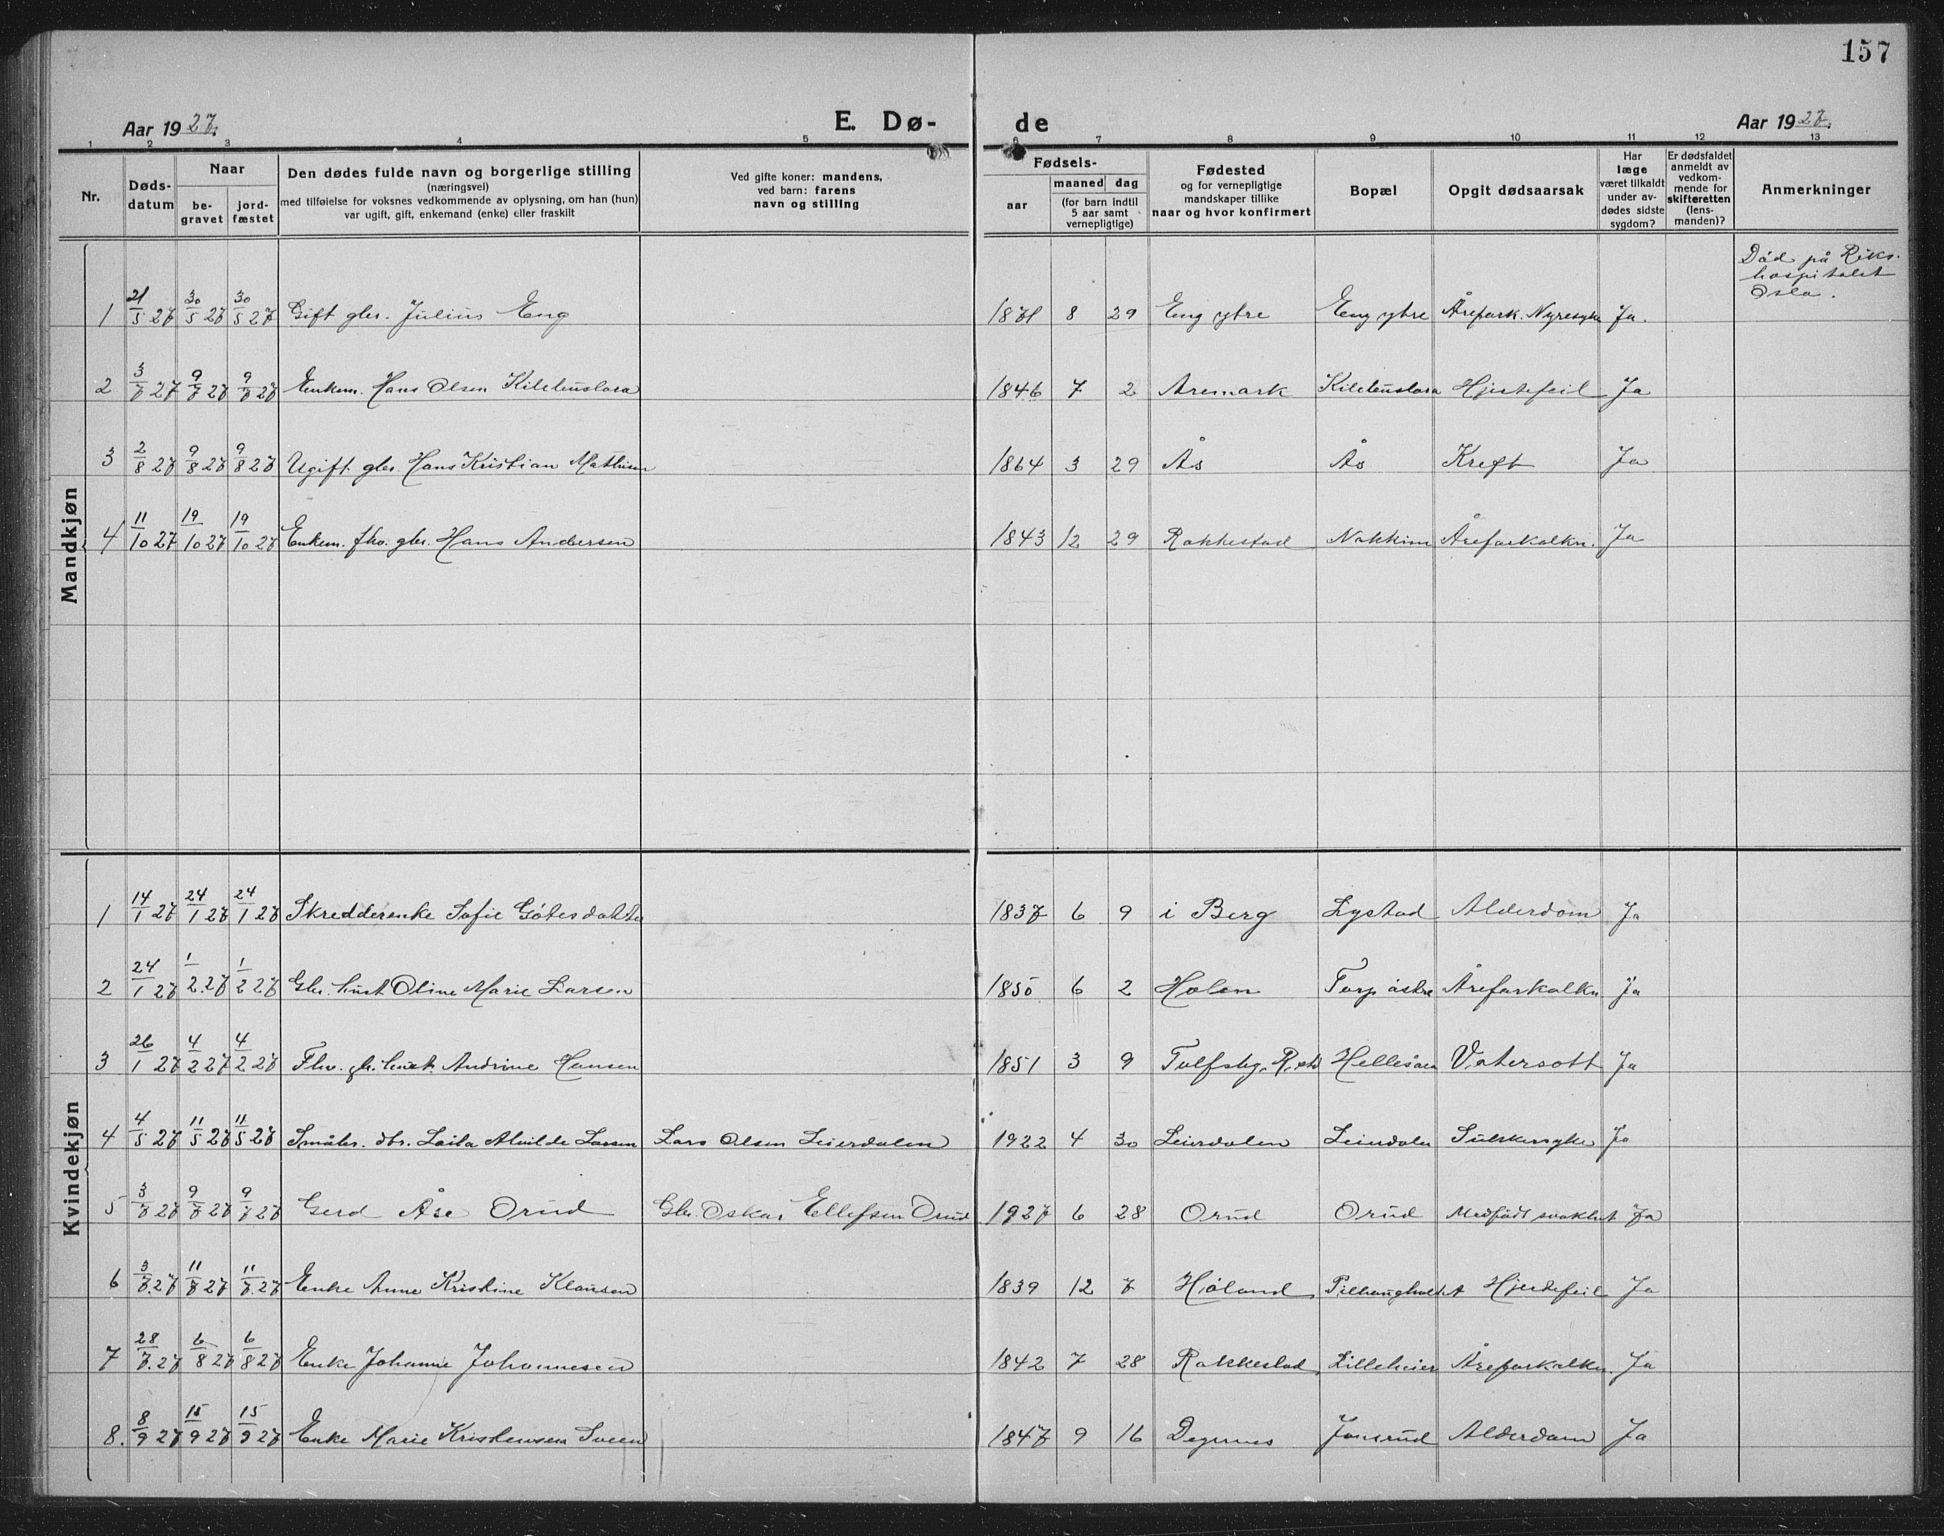 157
Aar 1927.
E. Dø- de
Aar 1927.
1 2 3 4 5 6 7 8 9 10 11 12 13
Nr.
Døds-
datum
Naar
be-
gravet
jord-
fæstet
Den dødes fulde navn og borgerlige stilling
(næringsvei)
med tilføielse for voksnes vedkommende av oplysning, om han (hun)
var ugift, gift, enkemand (enke) eller fraskilt
Ved gifte koner: mandens,
ved barn: farens
navn og stilling
Fødsels-
aar
maaned dag
(for barn indtil
5 aar samt
vernepligtige)
Fødested
og for vernepligtige
mandskaper tillike
naar og hvor konfirmert
Bopæl
Opgit dødsaarsak
Har
læge
været tilkaldt
under av-
dødes sidste
sygdom?
Er dødsfaldet
anmeldt av
vedkom-
mende for
skifteretten
(lens-
manden)?
Anmerkninger
Mandkjøn
Død på Riks-
hospitalet
Oslo.
1 21/5 27 30/5 27 30/5 27 Gift gbr. Julius Eng 1871 8 29 Eng ytre Eng ytre Årefork. Nyresyke Ja.
2 3/7 27 9/7 27 9/7 27 Enkem. Hans Olsen Kilebuslora 1846 7 2 Aremark Kilebuslora Hjertefeil Ja
3 2/8 27 9/8 27 9/8 27 Ugift gbr. Hans Kristian Mathisen 1864 3 29 Ås Ås Kreft Ja
4 11/10 27 19/10 27 19/10 27 Enkem. fhv. gbr. Hans Andersen 1843 12 29 Rakkestad Nakkim Åreforkalkn. Ja
Kvindekjøn
1 14/1 27 24/1 27 24/1 27 Skredderenke Sofie Götesdatter 1837 6 9 i Berg Lystad Alderdom Ja
2 24/1 27 1/2 27 1/2 27 Gbr. hust Oline Marie Larsen 1850 6 2 Holen Torp østre Åreforkalkn Ja
3 26/1 27 4/2 27 4/2 27 Fhv. gbr. hust. Andrine Hansen 1851 3 9 Tolfsby, R.std Hellesåen Vatersott Ja
4 4/5 27 11/5 27 11/5 27 Småbr. dtr. Laila Alvilde Larsen Lars Olsen Leierdalen 1922 4 30 Leierdalen Leierdalen Sukkersyke Ja
5 3/7 27 9/7 27 9/7 27 Gerd Åse Orud Gbr. Oskar Ellefsen Orud 1927 6 28 Orud Orud Medfødt svakhet Ja
6 3/7.27 11/7 27 11/7.27 Enke Anne Kristine Klausen 1839 12 7 Høland Hjertefeil Ja
7 28/7.27 6/8 27 6/8 27 Enke Johanne Johannesen 1842 7 28 Rakkestad Lilleheier Åreforkalkn. Ja
8. 8/9 27 15/9 27 15/9 27 Enke Marie Kristensen Sveen 1847 9 16 Degernes Jonsrud Alderdom Ja